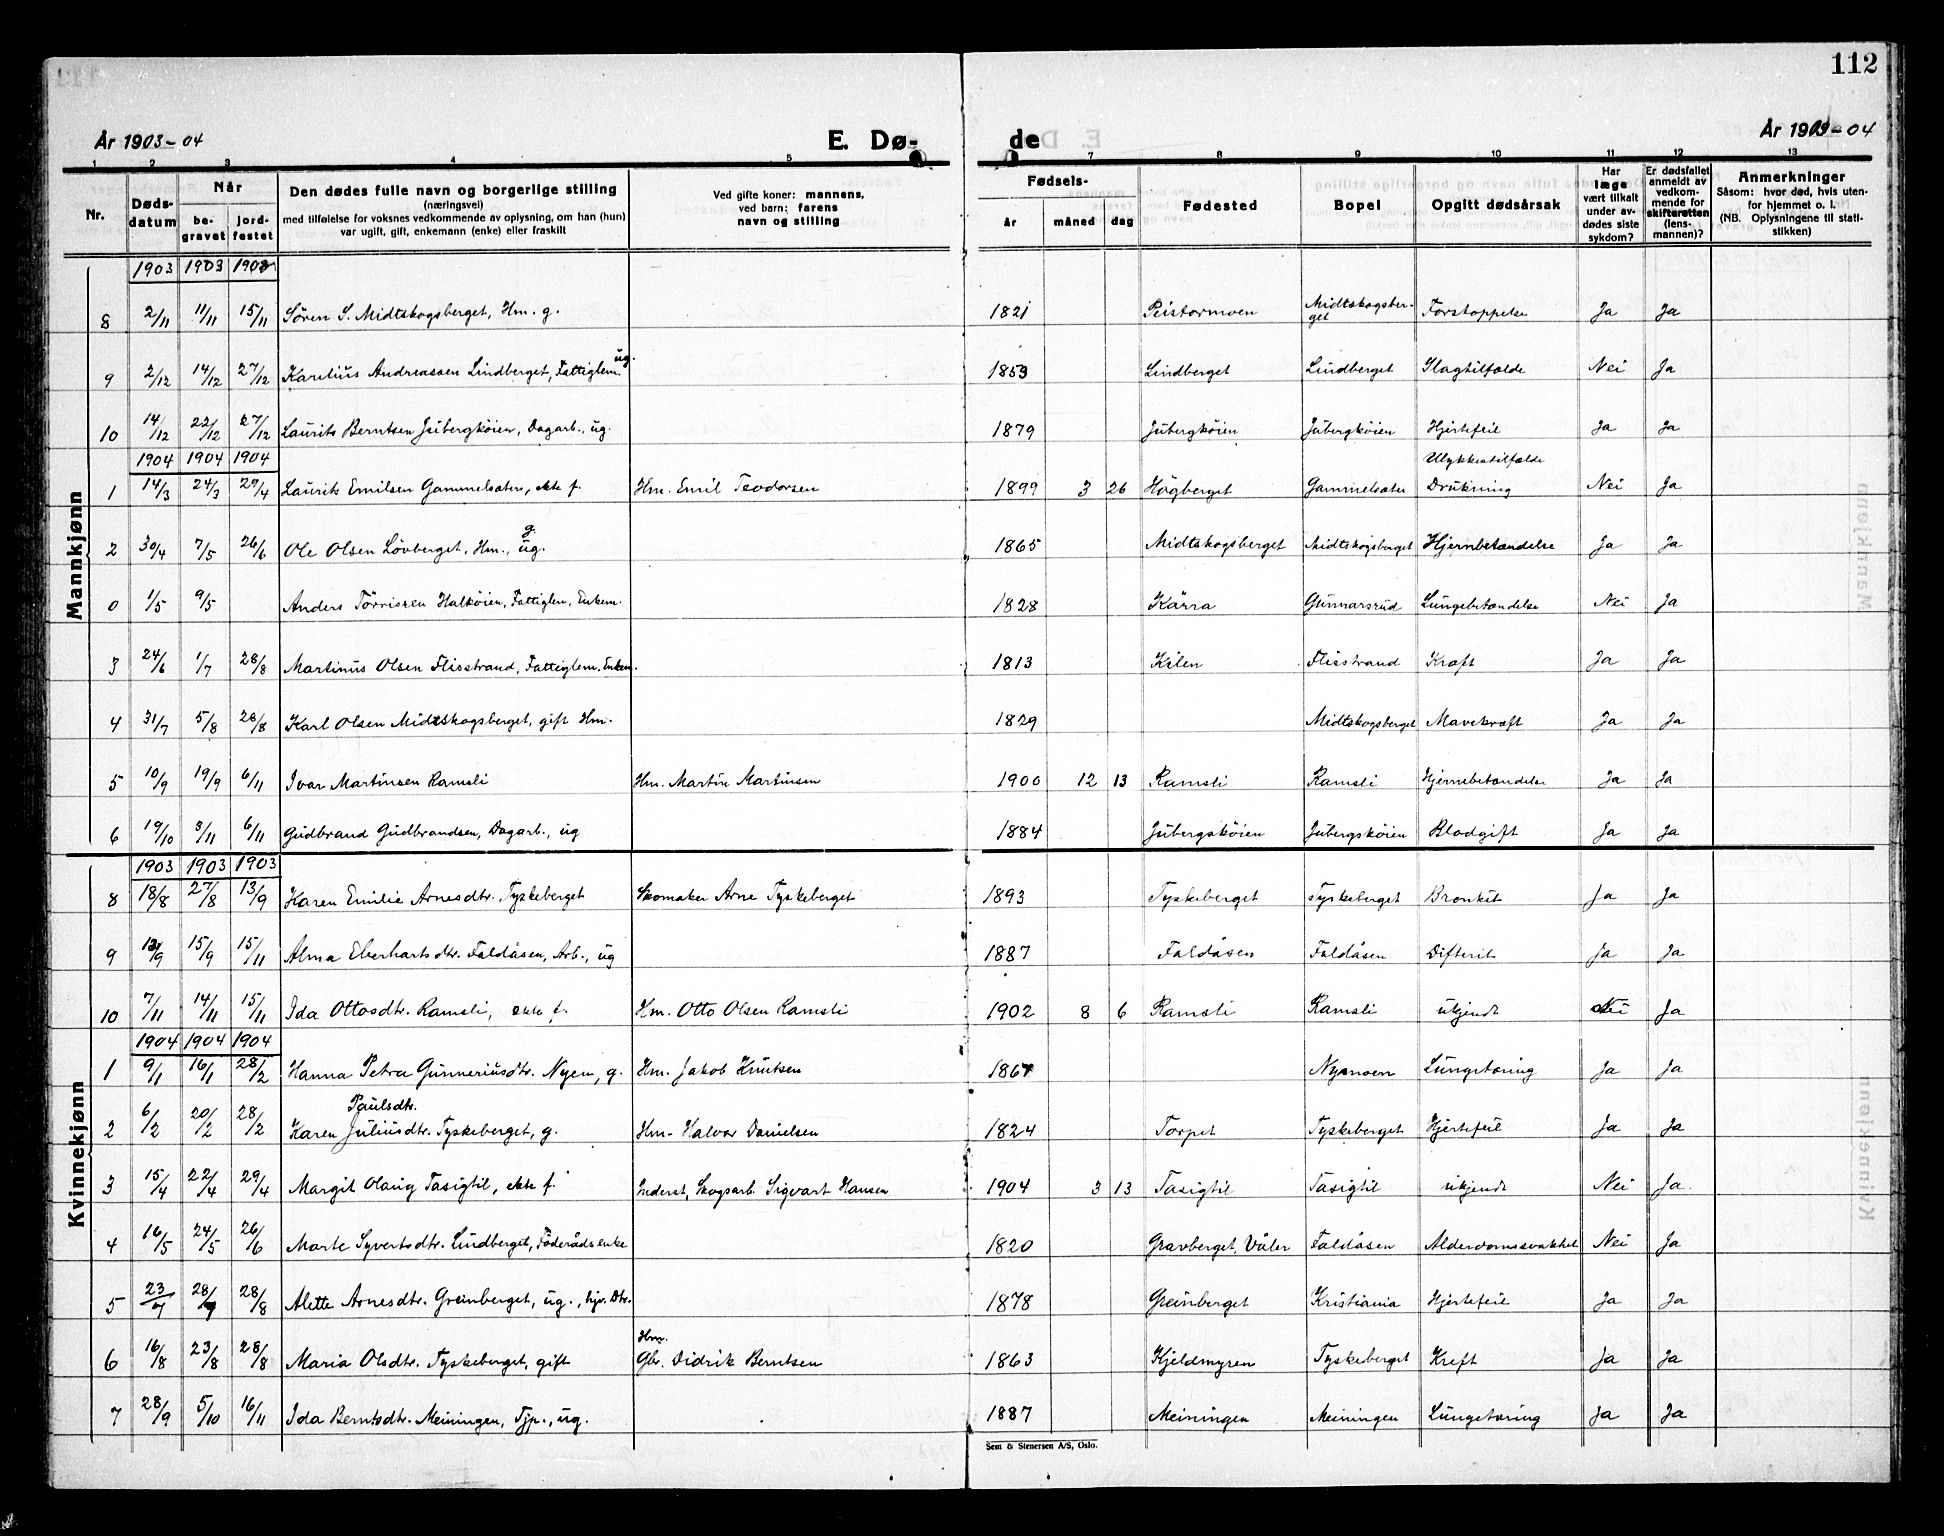 112
År 1903-04 E. Dø- de År 1903-04
1 2 3 4 5 7 8 9 10 11 12 13
Nr. Dødsdatum Når begravet jordfestet Den dødes fulle navn og borgerlige stilling (næringsvei) med tilføielse for voksnes vedkommende av oplysning, om han (hun) var ugift, gift, enkemann (enke) eller fraskilt Ved gifte koner: mannens, ved barn: farens navn og stilling Fødsels- år måned dag Fødested Bopel Opgitt dødsårsak Har læge vært tilkalt under avdødes siste sykdom? Er dødsfallet anmeldt av vedkommende for skifteretten (lensmannen)? Anmerkninger Såsom: hvor død, hvis utenfor hjemmet o. l. (NB. Oplysningene til statistikken)
Mannkjønn
1903 1903 1903
8 2/11 11/11 15/11 Sören S. Midtskogsberget, Hm. g. 1821 Peistormoen Midtskogsberget Forstoppelse Ja Ja
9 2/12 14/12 27/12 Karelius Andreassen Lindberget, Fattiglem. ug. 1853 Lindberget Lindberget Slagtilfælde Nei Ja
10 14/12 22/12 27/12 Laurits Berntsen Jubergköien, Dagarb., ug. 1879 Jubergköien Jubergköien Hjertefeil Ja Ja
1904 1904 1904
1 14/3 24/3 29/4 Laurits Emilsen Gammelsæter, ekte f. Hm. Emil Teodorsen 1899 3 26 Högberget Gammelsæter Ulykkestilfælde Drukning Nei Ja
2 30/4 7/5 26/6 Ole Olsen Lövberget, Hm., g. ug. 1865 Midtskogsberget Midtskogsberget Hjernbetændelse Ja Ja
0 1/5 9/5 Anders Törrissen Halköien, Fattiglem, Enkem. 1828 Kärra Gunnarsrud Lungebetændelse Nei Ja
3 24/6 1/7 28/8 Martinus Olsen Flisstrand, Fattiglem. Enkem. 1813 Kilen Flisstrand Kræft Ja Ja
4 31/7 5/8 28/8 Karl Olsen Midtskogsberget, gift Hm. 1829 Midtskogsberget Mavekræft Ja Ja
5 10/9 19/9 6/11 Ivar Martinsen Ramsli Hm. Martin Martinsen 1900 12 13 Ramsli Ramsli Hjernebetændelse Ja Ja
6 19/10 3/11 6/11 Gudbrand Gudbrandsen, Dagarb., ug 1884 Jubergsköien Jubergsköien Blodgift Ja Ja
Kvinnekjønn
1903 1903 1903
8 18/8 27/8 13/9 Karen Emilie Arnesdtr. Tyskeberget Skomaker Arne Tyskeberget 1893 Tyskeberget Tyskeberget Bronkit Ja Ja
9 /9 15/9 15/11 Alma Eberhartsdtr. Faldåsen, Arb., ug 1887 Faldåsen Faldåsen Difterit Ja Ja
10 7/11 14/11 15/11 Ida Ottosdtr. Ramsli, ekte f. Hm. Otto Olsen Ramsli 1902 8 6 Ramsli Ramsli ukjendt Nei Ja
1904 1904 1904
1 9/1 16/1 28/2 Hanna Petra Gunneriusdtr. Nyen, g. Hm. Jakob Knutsen 1867 Nysmoen Lungetæring Ja Ja
Paulsdtr.
2 6/2 20/2 28/2 Karen Juliusdtr. Tyskeberget, g. Hm. Halvor Danielsen 1824 Torpet Tyskeberget Hjertefeil Ja Ja
3 15/4 22/4 29/4 Margit Olaug Tasigtil, ekte f. Inderst, Skogsarb. Sigvart Hansen 1904 3 13 Tasigtil Tasigtil ukjendt Nei Ja.
4 16/5 24/5 26/6 Marte Syvertsdtr. Lindberget, Föderådsenke 1820 Gravberget, Våler Faldåsen Alderdomssvakhet Nei Ja
5 23/7 28/7 28/8 Alette Arnesdtr. Greinberget, ug., hjv. Dtr. 1878 Greinberget Kristiania Hjertefeil Ja Ja
6 16/8 23/8 28/8 Maria Olsdtr. Tyskeberget, gift Hm. Gbr. Didrik Berntsen 1863 Kjeldmyren Tyskeberget Kreft Ja Ja
7 28/9 5/10 16/11 Ida Berntsdtr. Meiningen, Tjp., ug. 1887 Meiningen Meiningen Lungetæring Ja Ja
Sem & Stenersen A/S, Oslo.